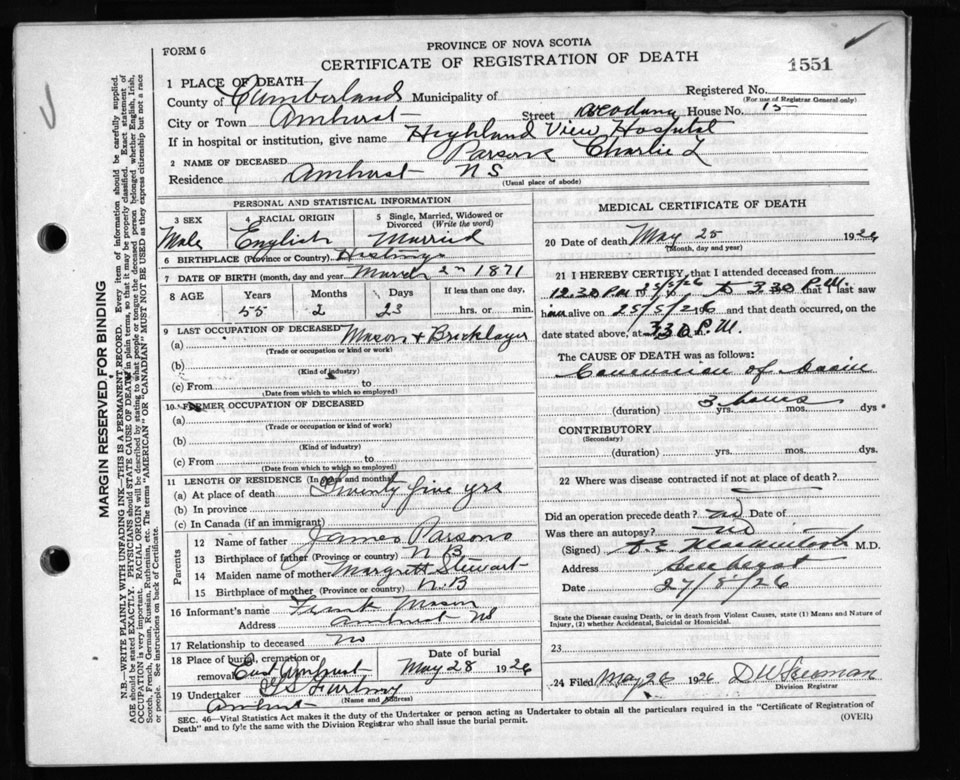 FORM 6
PROVINCE OF NOVA SCOTIA
CERTIFICATE OF REGISTRATION OF DEATH
1551
1 PLACE OF DEATH
County of Cumberland Municipality of Registered No.
(For use of Registrar General only)
City or Town Amherst Street House No. 15
If in hospital or institution, give name Highland View Hospital
2 NAME OF DECEASED Parsons Charlie L
Residence Amherst N S
(Usual place of abode)
PERSONAL AND STATISTICAL INFORMATION
3 SEX 4 RACIAL ORIGIN 5 Single, Married, Widowed or Divorced (Write the word)
Male English Married
6 BIRTHPLACE (Province or Country) Hastings
7 DATE OF BIRTH (month, day and year) March 2nd 1871
8 AGE Years Months Days If less than one day,
55 2 23 hrs. or min.
9 LAST OCCUPATION OF DECEASED
(a) Mason & Bricklayer
(Trade or occupation or kind of work)
(b)
(Kind of industry)
(c) From to
(Date from which to which so employed)
10 FORMER OCCUPATION OF DECEASED
(a)
(Trade or occupation or kind of work)
(b)
(Kind of industry)
(c) From to
(Date from which to which so employed)
11 LENGTH OF RESIDENCE (In years and months)
(a) At place of death Twenty five yrs
(b) In province
(c) In Canada (if an immigrant)
Parents
12 Name of father James Parsons
13 Birthplace of father (Province or country) N B
14 Maiden name of mother Margrett Stewart
15 Birthplace of mother (Province or country) N.B
16 Informant's name Frank Mason
Address Amherst NS
17 Relationship to deceased No
18 Place of burial, cremation or removal East Amherst
Date of burial May 28 1926
19 Undertaker
(Name and Address)
Amherst
MEDICAL CERTIFICATE OF DEATH
20 Date of death May 25 1926
(Month, day and year)
21 I HEREBY CERTIFY that I attended deceased from
12.30 P.M. 25/5/26 to 3.30 P.M. I last saw
him alive on 25/5/26 and that death occurred, on
date stated above, at 3.30 P.M.
The CAUSE OF DEATH was as follows:
Concussion of brain
3 hours
(duration) yrs. mos. dys.
CONTRIBUTORY
(Secondary)
(duration) yrs. mos. dys.
22 Where was disease contracted if not at place of death?
Did an operation precede death? no Date of
Was there an autopsy? no
(Signed) M.D.
Address Amherst
Date 27/5/26
State the Disease causing Death, or in death from Violent Causes, state (1) Means and Nature of Injury, (2) whether Accidental, Suicidal or Homicidal.
23
24 Filed May 26 1926
Division Registrar
SEC. 46—Vital Statistics Act makes it the duty of the Undertaker or person acting as Undertaker to obtain all the particulars required in the "Certificate of Registration of
Death" and to file the same with the Division Registrar who shall issue the burial permit.
(OVER)
MARGIN RESERVED FOR BINDING
N.B.—WRITE PLAINLY WITH UNFADING INK—THIS IS A PERMANENT RECORD. Every item of information should be carefully supplied.
AGE should be stated EXACTLY. PHYSICIANS should STATE CAUSE OF DEATH in plain terms, so that it may be properly classified. Exact statement of
OCCUPATION is very important. RACIAL ORIGIN will be described by stating to what people or tongue the deceased person belonged whether English, Irish,
Scotch, French, German, Russian, Ruthenian, etc. The terms "AMERICAN" OR "CANADIAN" MUST NOT BE USED as they express citizenship but not a race
or people. See instructions on back of Certificate.